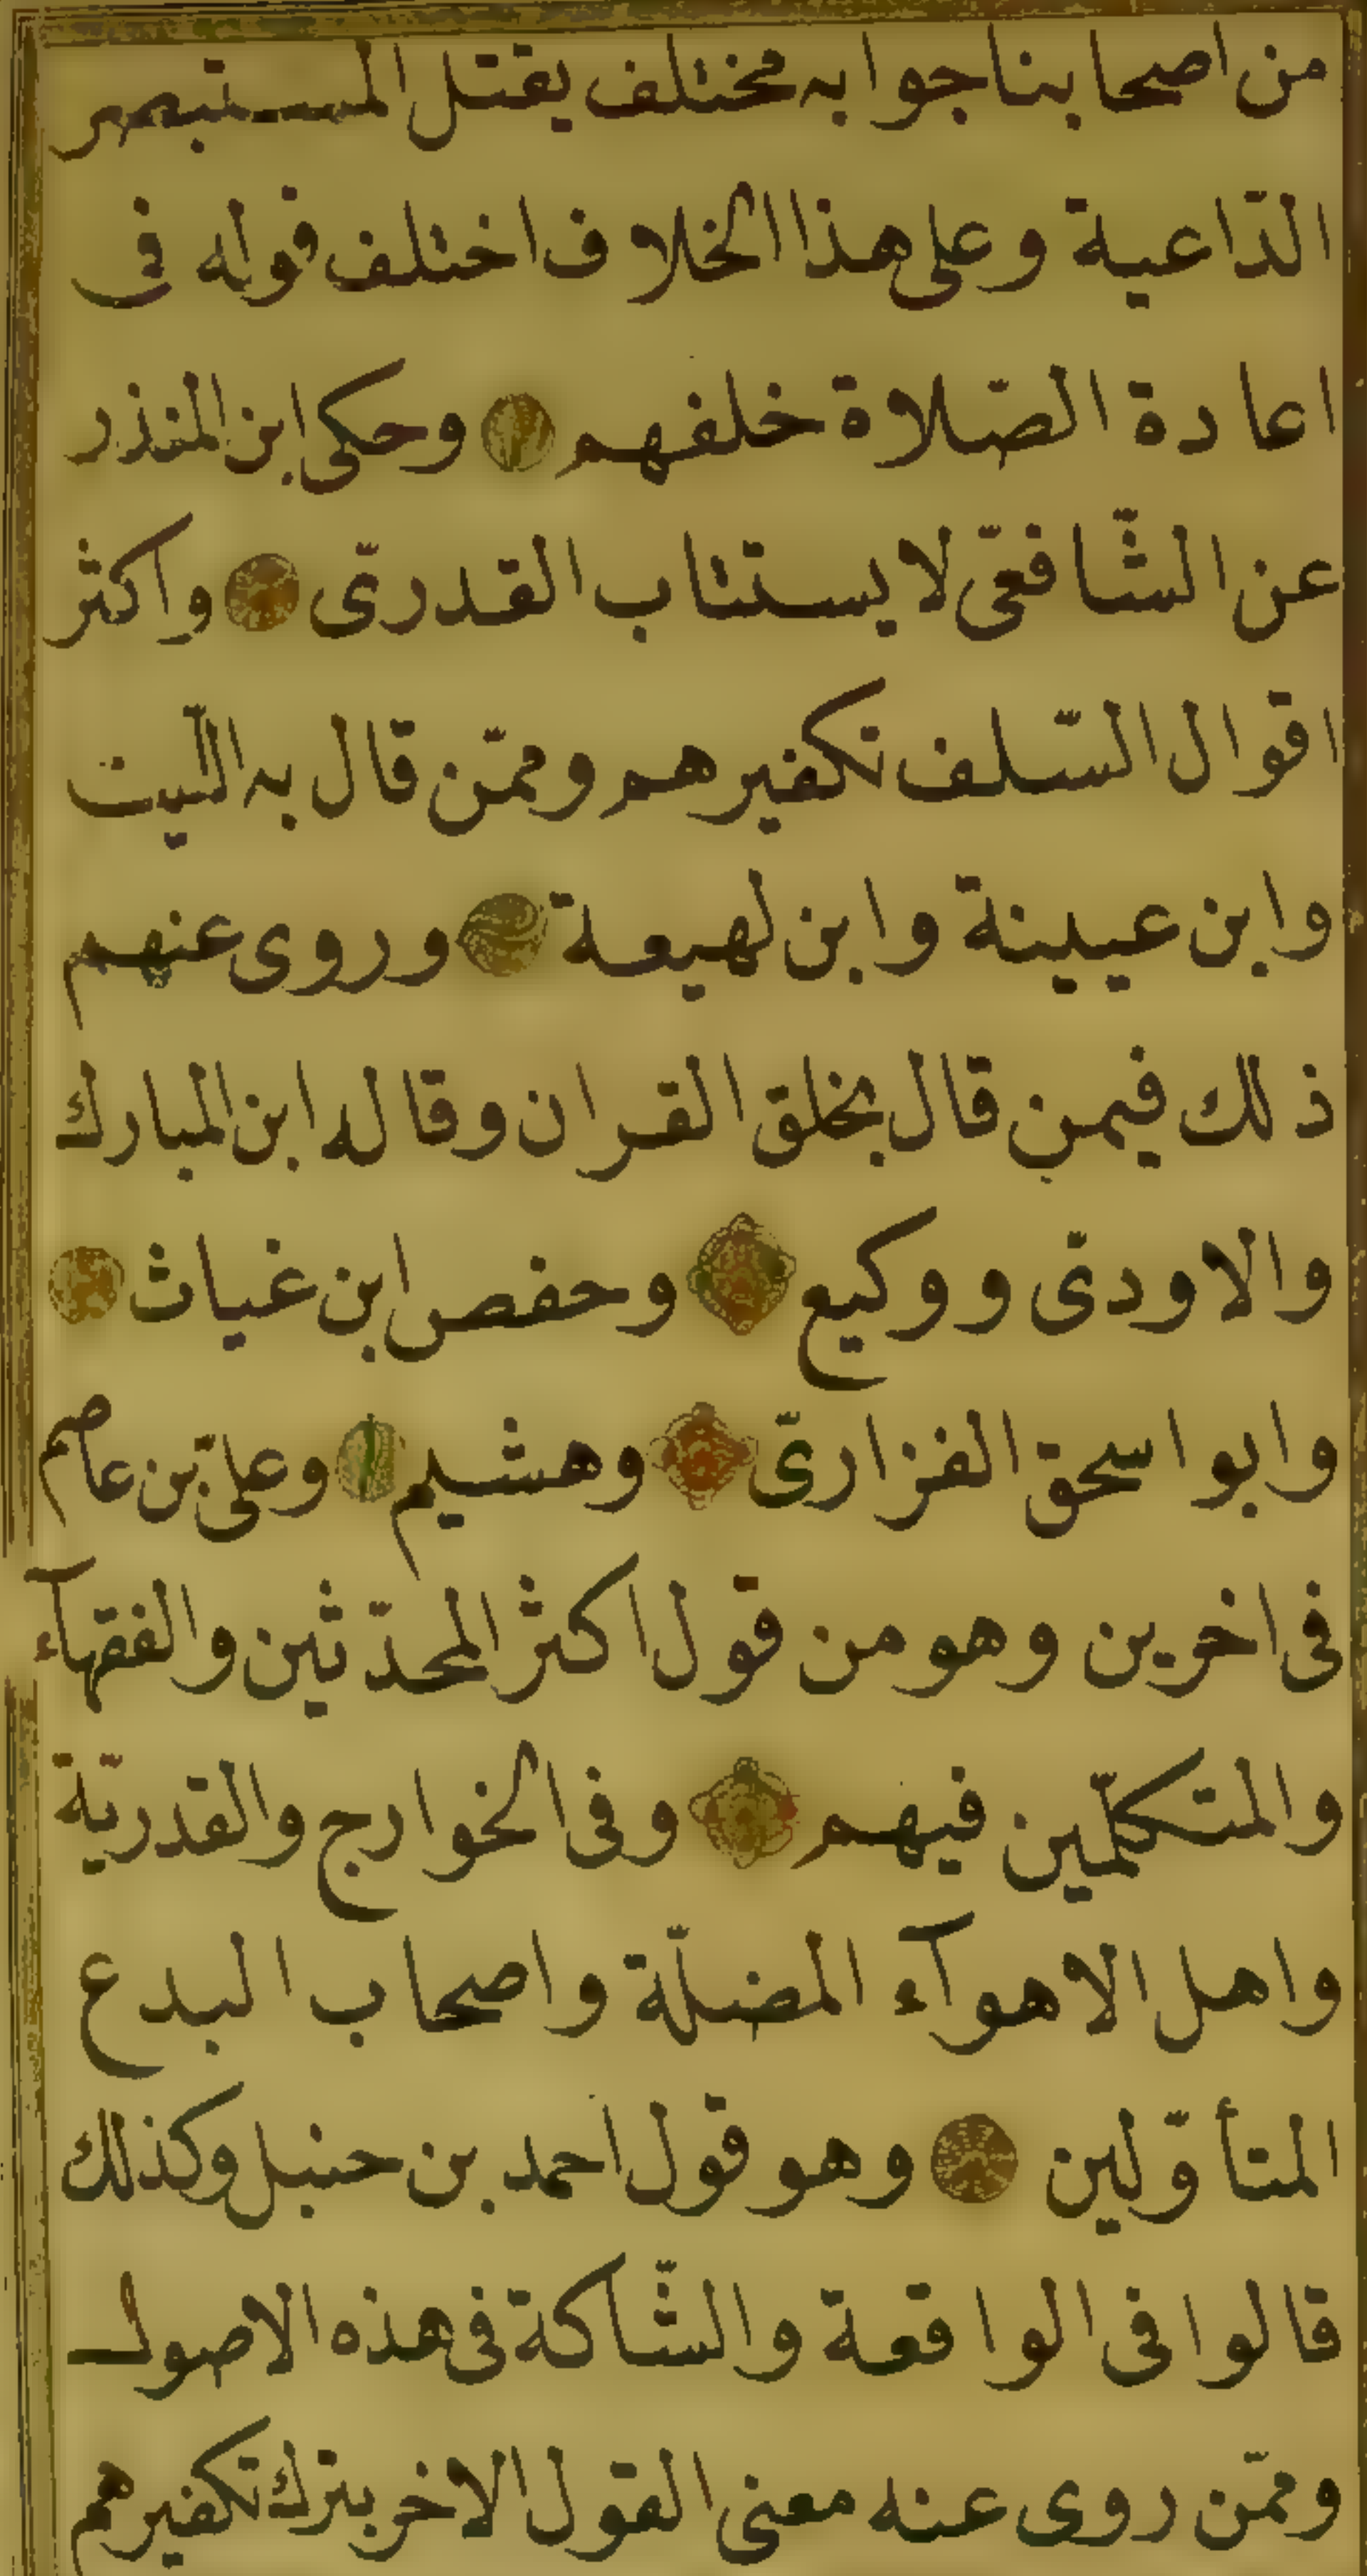 من اصحابنا جوابه مختلف يقتل المستبصر
الدّاعية وعلى هذا الخلاف اختلف قوله فى
اعادة الصّلاة خلفهم وحكى ابن المنذر
عن الشّافعىّ لا يستتاب القدرىّ واكثر
اقوال السّلف تكفيرهم وممّن قال به اللّيت
وابن عيينة وابن لهيعة وروى عنهم
ذلك فيمن قال بخلق القران وقاله ابن المبارك
والاودىّ ووكيع وحفص ابن غياث
وابو اسحق الفزارىّ وهشيم وعلىّ بن عاصم
فى اخرين وهو من قول اكثر المحدّثين والفقهآء
والمتكلّمين فيهم وفى الخوارج والقدريّة
واهل الاهوآء المضلّة واصحاب البدع
المتأوّلين وهو قول احمد بن حنبل وكذلك
قالوا فى الواقعة والشّاكة فى هذه الاصول
وممّن روى عنه معنى القول الاخر بترك تكفيرهم